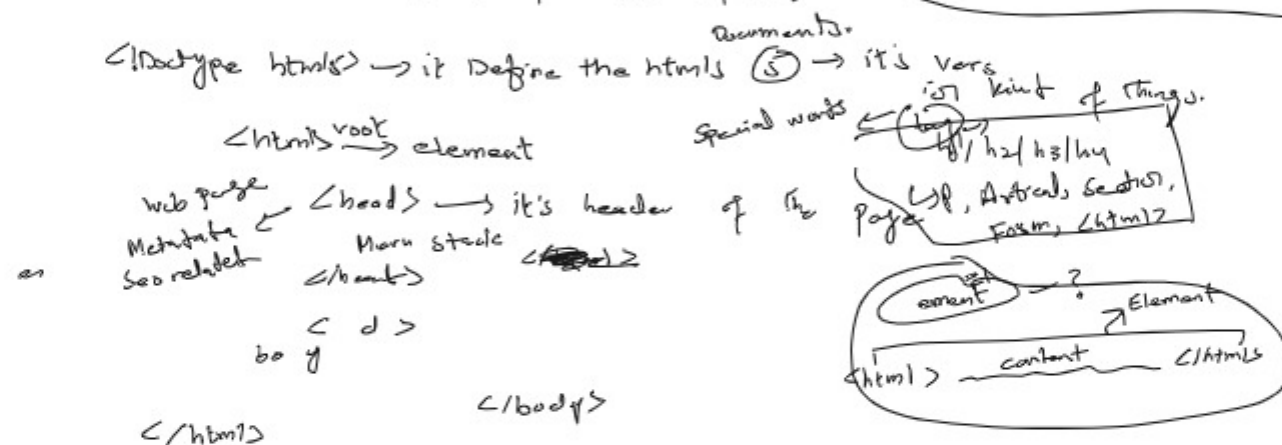 Documents.
<!Doctype html5> → it Define the html5 (5) → it's vers
ion kind of things.
<html> root → element
Special words ← (tag) →
h1/h2/h3/h4
↳ P, Articals, Section,
Form, <html>
web page
Metadata ← <head> → it's header of the Page
Seo related
Mern stack
</head>
< d >
bo y
</body>
</html>
element → ?
Element
<html> content </html>